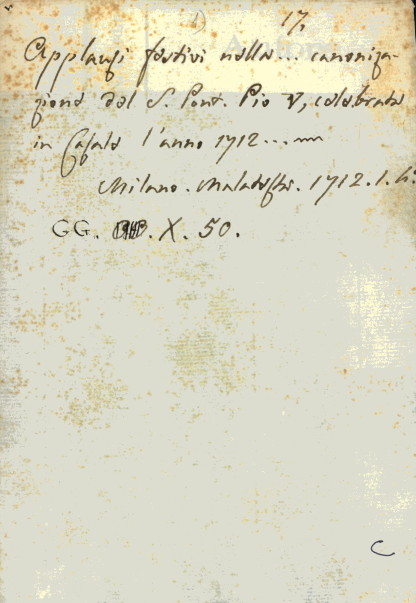 1) 17.
Applausi festivi nella... canoniza-
zione del S. Pont. Pio V, celebrata
in Casale l'anno 1712...
Milano. Malatesta. 1712. 1.
GG. X. 50.
C